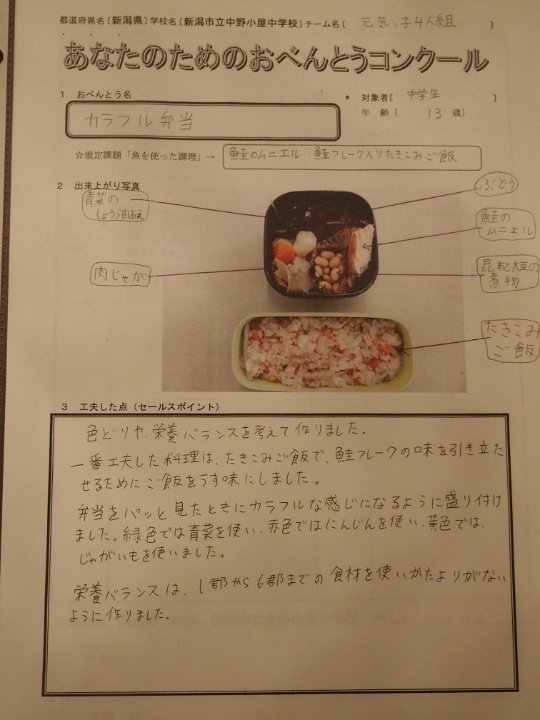 都道府県名[新潟県]学校名[新潟市立中野小屋中学校]チーム名[ 元気っ子4人組 ]
あなたのためのおべんとうコンクール
1 おべんとう名
* 対象者[ 中学生 ]
年 齢[ 13 歳]
カラフル弁当
☆規定課題「魚を使った調理」→ 鮭のムニエル・鮭フレーク入りたきこみご飯
2 出来上がり写真
青菜の
しょう油あえ
ぶどう
鮭の
ムニエル
肉じゃが
昆布と大豆の
煮物
たきこみ
ご飯
3 工夫した点(セールスポイント)
色どりや、栄養バランスを考えて作りました。
一番工夫した料理は、たきこみご飯で、鮭フレークの味を引き立た
せるためにご飯をうす味にしました。
弁当をパッと見たときにカラフルな感じになるように盛り付け
ました。緑色では青菜を使い、赤色ではにんじんを使い、黄色では、
じゃがいもを使いました。
栄養バランスは、1郡から6郡までの食材を使いかたよりがない
ように作りました。